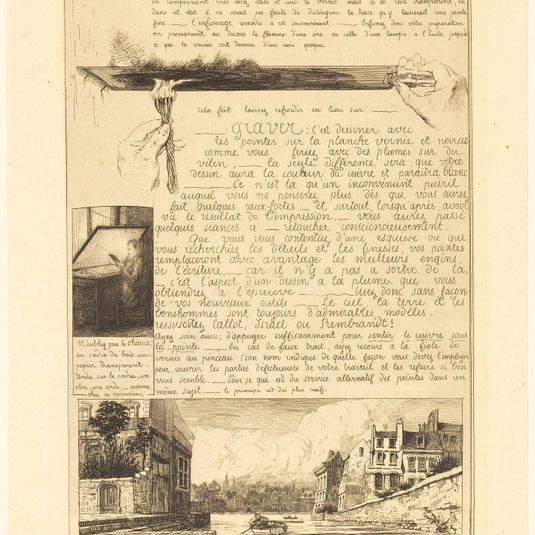 en tamponnant vous avez étalé et uni le vernis mais il est resté transparent, et
dans cet état il ne serait pas facile de distinguer la trace qu'y laisserait une pointe
fine — l'enfumage remédie à cet inconvenient — Enfumez donc votre préparation
en promenant au dessous la flamme d'une cire ou celle d'une lampe à l'huile jusqu'à
ce que le vernis soit devenu d'un noir opaque.
cela fait laissez refroidir en lieu sur —
— GRAVER : C'est dessiner avec
les pointes sur la planche vernie et noircie
comme vous feriez avec des plumes sur du
velin; — la seule différence sera que votre
dessin aura la couleur du cuivre et paraitra blanc
— Ce n'est là qu'un inconvenient puéril
auquel vous ne penserez plus dès que vous aurez
fait quelques eaux-fortes — et surtout lorsqu'après avoir
vu le résultat de l'impression — vous aurez passé
quelques séances à — retoucher consciencieusement.
Que vous vous contentiez d'une esquisse ou que
vous recherchiez les détails et les finesses, vos pointes
remplaceront avec avantage les meilleurs engins
de l'écriture, — car il n'y a pas à sortir de là,
— c'est l'aspect d'un dessin à la plume que vous
obtiendrez à l'épreuve — Usez donc sans façon
de vos nouveaux outils — Le ciel la terre et les
bonshommes sont toujours d'admirables modèles —
ressuscitez Callot, Israël ou Rembrandt!
Ayez soin aussi, d'appuyer suffisamment pour sentir le cuivre sous
la pointe — En cas de faux trait ayez recours à la fiole de
vernis au pinceau (son nom indique de quelle façon vous devez l'employer
pour couvrir les parties défectueuses de votre travail et les refaire si bon
vous semble — Pour ce que est du service alternatif des pointes dans un
même sujet — le principe est des plus naïfs.
N'oubliez pas le chassis,
un cadre de bois, un
papier transparent
tendu sur le cadre, un
clou, une corde — comme
chez ce monsieur.